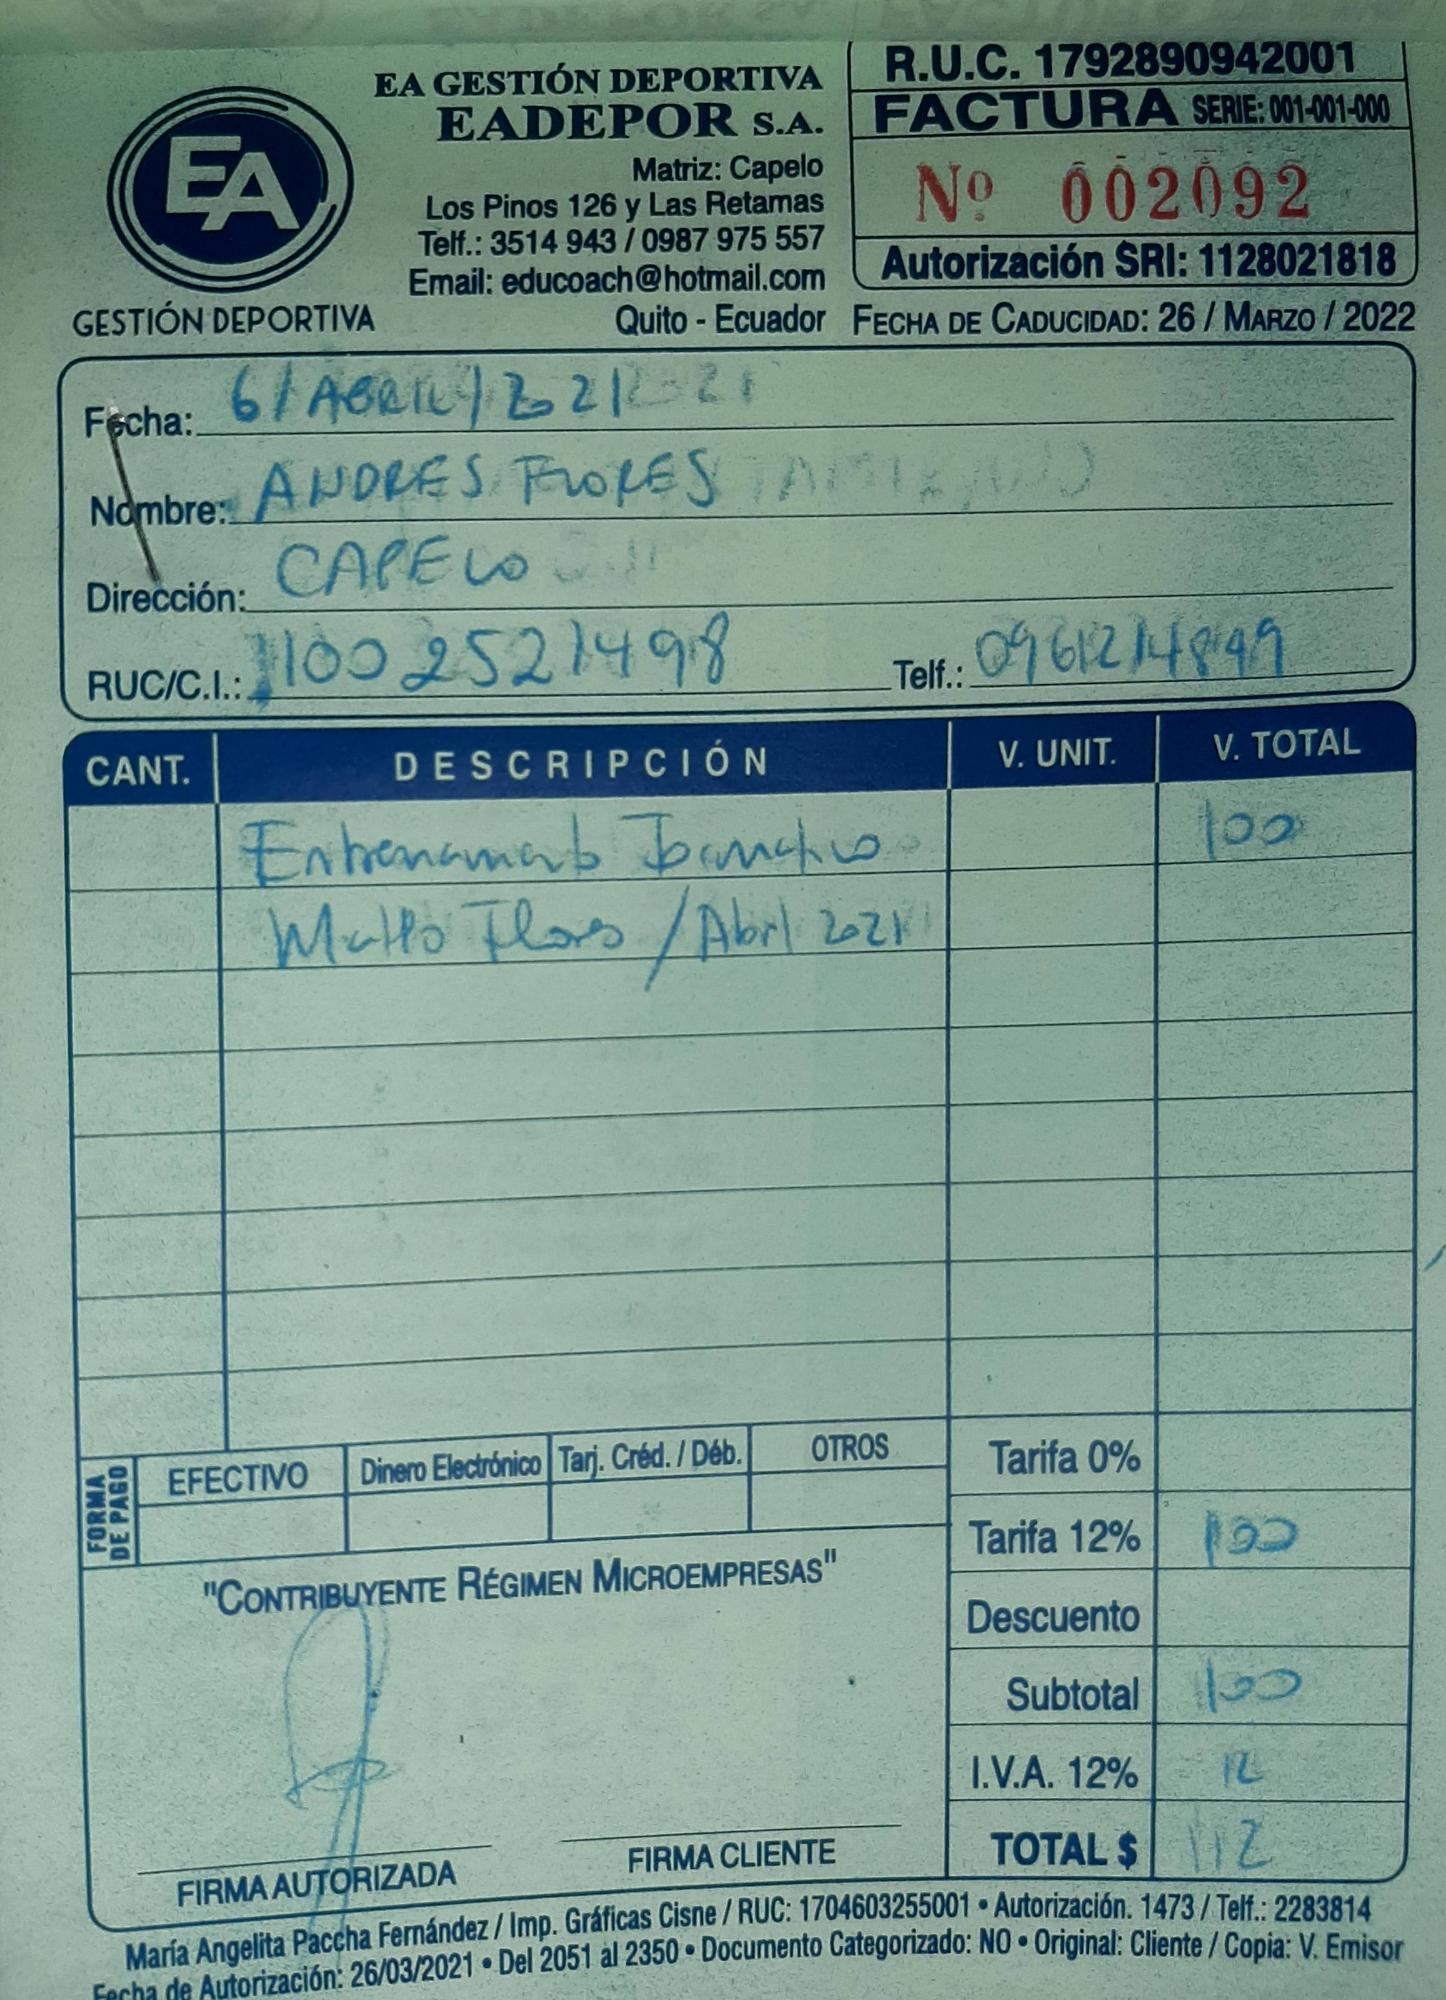 EA GESTIÓN DEPORTIVA
EADEPOR S.A.
Matriz: Capelo
Los Pinos 126 y Las Retamas
Telf.: 3514 943 / 0987 975 557
Email: educoach@hotmail.com
Quito - Ecuador
EA
GESTIÓN DEPORTIVA
R.U.C. 1792890942001
FACTURA SERIE: 001-001-000
Nº 002092
Autorización SRI: 1128021818
FECHA DE CADUCIDAD: 26 / MARZO / 2022
Fecha: 6/ABRIL/2021
Nombre: ANDRES FLORES
Dirección: CAPELO
RUC/C.I.: 1002521498 Telf.: 0961214849
CANT. DESCRIPCIÓN V. UNIT. V. TOTAL
100
Flores / Abril 2021
FORMA DE PAGO
EFECTIVO Dinero Electrónico Tarj. Créd. / Déb. OTROS
Tarifa 0%
Tarifa 12% 100
Descuento
Subtotal 100
I.V.A. 12% 12
TOTAL $ 112
"CONTRIBUYENTE RÉGIMEN MICROEMPRESAS"
FIRMA AUTORIZADA FIRMA CLIENTE
María Angelita Paccha Fernández / Imp. Gráficas Cisne / RUC: 1704603255001 • Autorización. 1473 / Telf.: 2283814
Fecha de Autorización: 26/03/2021 • Del 2051 al 2350 • Documento Categorizado: NO • Original: Cliente / Copia: V. Emisor